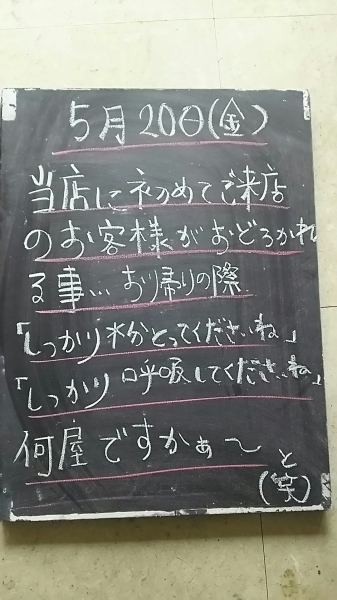 5月20日(金)
当店に初めてご来店
のお客様がおどろかれ
る事… お帰りの際
「しっかり水分とってくださいね」
「しっかり呼吸してくださいね」
何屋ですかぁ〜
と
(笑)